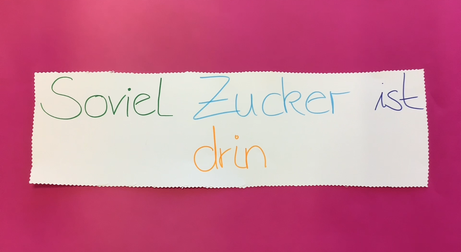 Soviel Zucker ist
drin